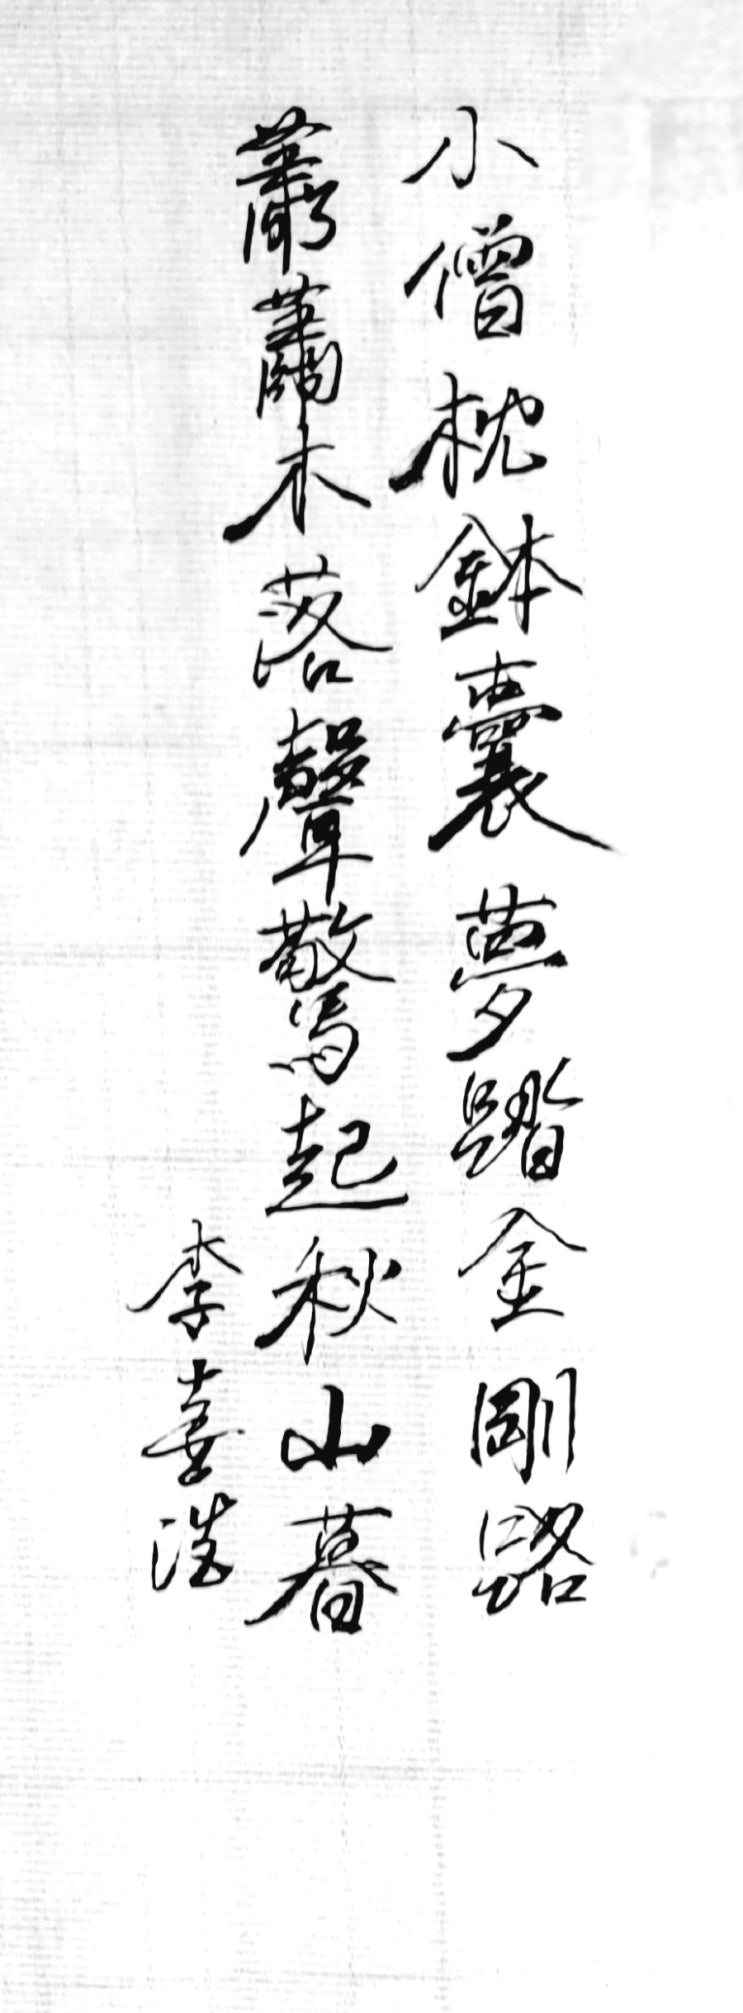 小僧枕鉢囊夢踏金剛路
蕭蕭木落聲驚起秋山暮
李喜浩